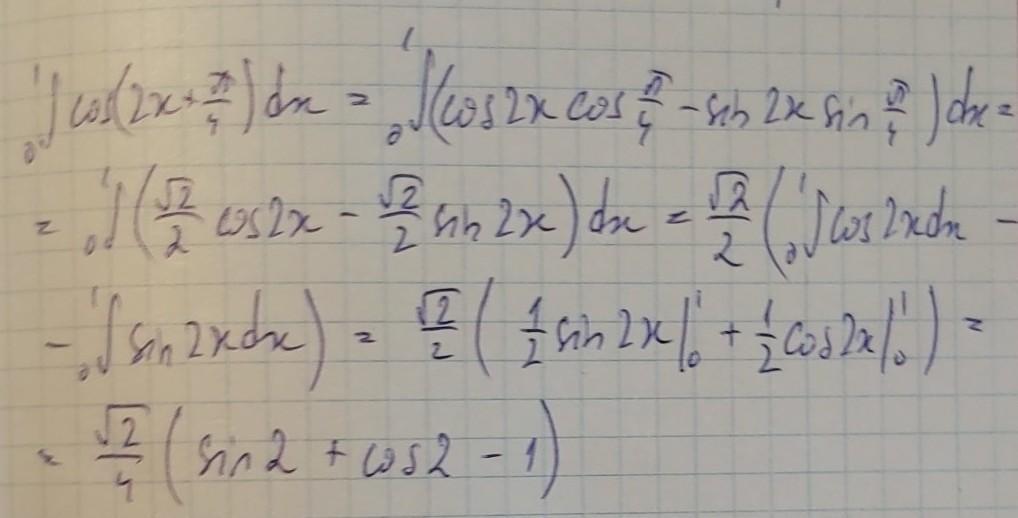 ₀¹∫cos(2x+π/4)dx = ₀¹∫(cos2x cos π/4 - sin 2x sin π/4)dx =
= ₀¹∫(√2/2 cos2x - √2/2 sin 2x)dx = √2/2 (₀¹∫cos 2xdx -
- ₀¹∫sin 2xdx) = √2/2 (1/2 sin 2x|₀¹ + 1/2 cos2x|₀¹) =
= √2/4 (sin2 + cos2 - 1)